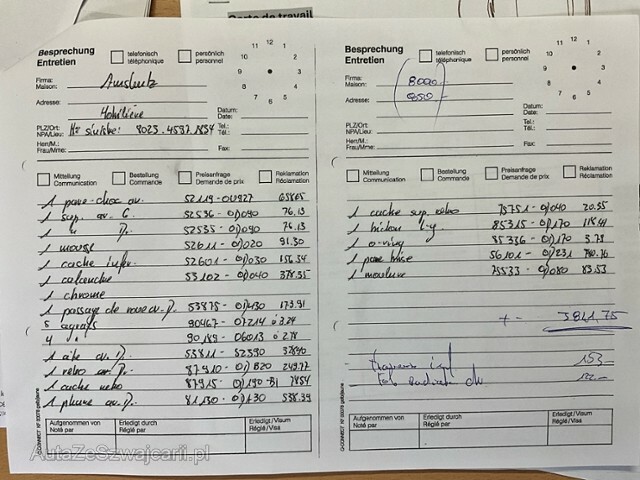 Carte de travail
Besprechung
Entretien
telefonisch
téléphonique
persönlich
personnel
11 12 1
10 2
9 3
8 4
7 6 5
Firma:
Maison:
Adresse:
Mobilière
Datum:
Date:
PLZ/Ort:
NPA/Lieu:
N= sinistre: 8023.4537.1854
Tel.:
Tél.:
Herr/M.:
Frau/Mme:
Mitteilung
Communication
Bestellung
Commande
Preisanfrage
Demande de prix
Reklamation
Réclamation
1 pare-choc av. 52119-0U927
1 sup. av. G. 52536-0J040 76.13
1 " D. 52535-0J090 76.13
1 mousse 52611-0J020 91.30
1 cache infr. 52601-0J030 156.34
1 calandre 53102-0J040 378.35
1 chrome
1 passage de roue av. D. 53875-0J430 173.91
5 agrafs 90467-07214 à 3.24
4 " 90189-06013 à 2.78
1 aile av. D. 53811-52390
1 retro av. D. 87910-0J B20 249.77
1 cache retro 87915-0J190-B1
1 phare av. D. 81130-0J130 538.39
Aufgenommen von
Noté par
Erledigt durch
Réglé par
Erledigt/Visum
Réglé/Visa
Q-CONNECT
Besprechung
Entretien
telefonisch
téléphonique
persönlich
personnel
11 12 1
10 2
9 3
8 4
7 6 5
Firma:
Maison:
8000.-
Adresse:
Datum:
Date:
PLZ/Ort:
NPA/Lieu:
Tel.:
Tél.:
Herr/M.:
Frau/Mme:
Mitteilung
Communication
Bestellung
Commande
Preisanfrage
Demande de prix
Reklamation
Réclamation
1 cache sup. retro 75751-0J040 20.55
1 bidon l-g 85315-0J170 118.41
1 o-ring 85336-0J170 3.78
1 pare brise 56101-0J231
1 moulure 75533-0J080 83.53
+- 3841,75
153.-
Aufgenommen von
Noté par
Erledigt durch
Réglé par
Erledigt/Visum
Réglé/Visa
Q-CONNECT
AutaZeSzwajcarii.pl